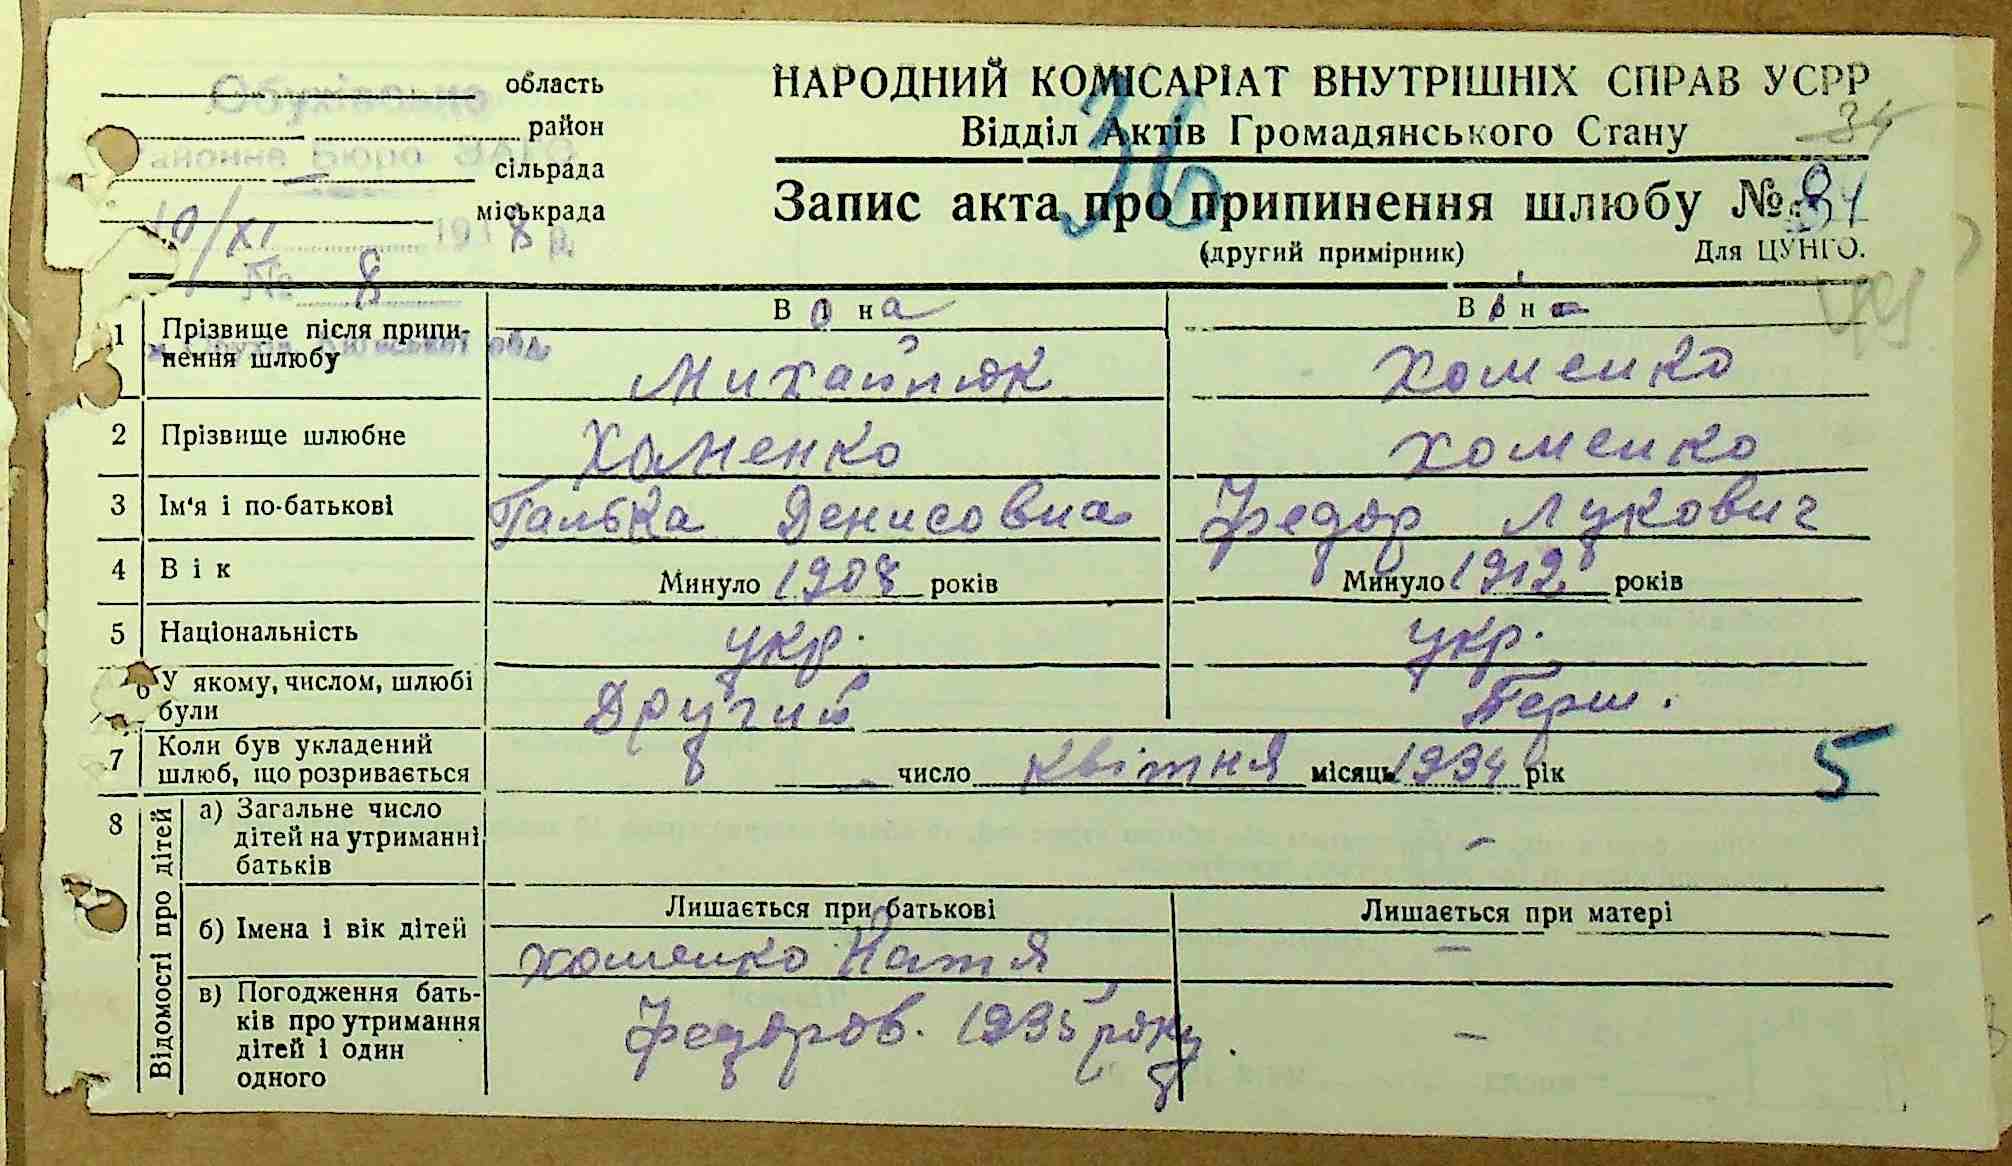 Обухівське
область
район
Районне Бюро ЗАГС
сільрада
міськрада
10/XI 1938 р.
№ 8
Київської обл
НАРОДНИЙ КОМІСАРІАТ ВНУТРІШНІХ СПРАВ УСРР
Відділ Актів Громадянського Стану
34
36
Запис акта про припинення шлюбу № 34
(другий примірник) Для ЦУНГО.
Вона Він
1 Прізвище після припинення шлюбу Михайлюк Хоменко
2 Прізвище шлюбне Хоменко Хоменко
3 Ім'я і по-батькові Галька Денисовна Федор Лукович
4 Вік Минуло 1908 років Минуло 1912 років
5 Національність укр. укр.
6 У якому, числом, шлюбі були Другий Перш.
7 Коли був укладений шлюб, що розривається 8 число квітня місяць 1934 рік 5
8 Відомості про дітей
а) Загальне число дітей на утриманні батьків -
Лишається при батькові Лишається при матері
б) Імена і вік дітей Хоменко Натя -
в) Погодження батьків про утримання дітей і один одного Федоров. 1935 року. -